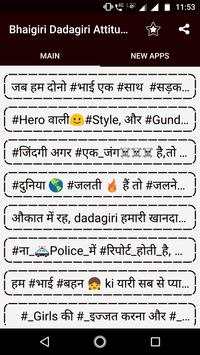 11:53
Bhaigiri Dadagiri Attitu...
MAIN
NEW APPS
जब हम दोनो #भाई एक #साथ #सड़क...
#Hero वाली🙂#Style, और #Gund...
#जिंदगी अगर #एक_जंग☠☠☠ है,तो ...
#दुनिया 🌎 #जलती 🔥 हैं तो #जलने...
औकात में रह, dadagiri हमारी खानदा...
#ना_🚔Police_में #रिपोर्ट_होती_है, ...
हम #भाई #बहन 👧 ki यारी सब से प्या...
#_Girls की #_इज्जत करना और #_...